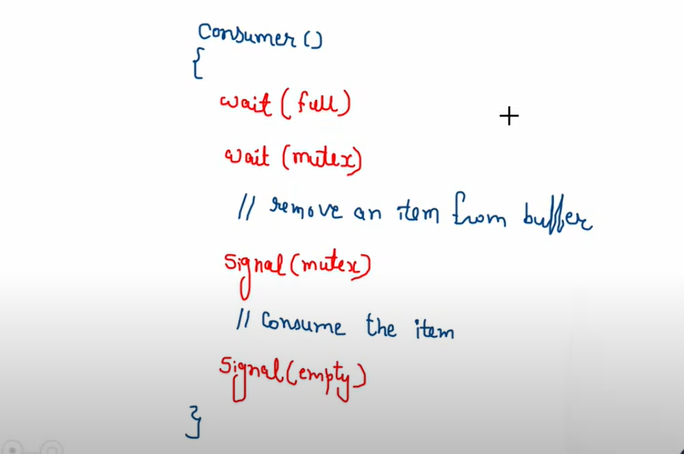 Consumer ()
{
wait (full)
wait (mutex)
// remove an item from buffer
Signal (mutex)
// Consume the item
Signal (empty)
}